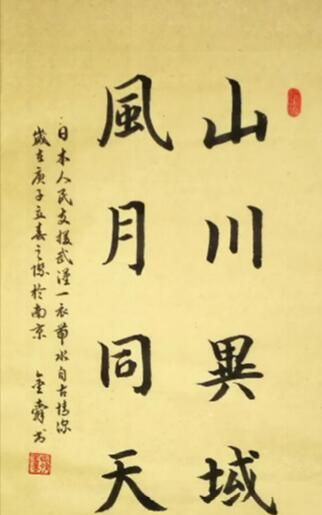 山川異域
風月同天
日本人民支援武漢一衣帶水自古情深
歲在庚子立春之際於南京
金舜书